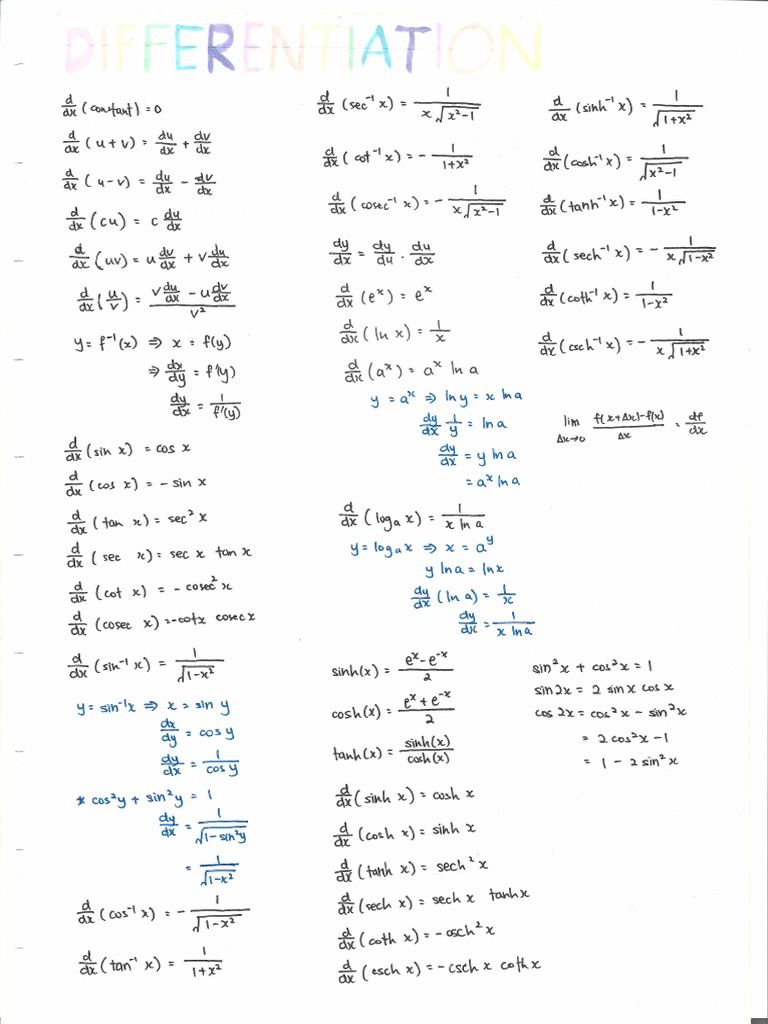 DIFFERENTIATION
d/dx (constant) = 0
d/dx (u + v) = du/dx + dv/dx
d/dx (u - v) = du/dx - dv/dx
d/dx (cu) = c du/dx
d/dx (uv) = u dv/dx + v du/dx
d/dx (u/v) = (v du/dx - u dv/dx)/v²
y = f⁻¹(x) ⇒ x = f(y)
⇒ dx/dy = f'(y)
dy/dx = 1/f'(y)
d/dx (sin x) = cos x
d/dx (cos x) = - sin x
d/dx (tan x) = sec² x
d/dx (sec x) = sec x tan x
d/dx (cot x) = - cosec² x
d/dx (cosec x) = -cotx cosec x
d/dx (sin⁻¹ x) = 1/√(1-x²)
y = sin⁻¹x ⇒ x = sin y
dx/dy = cos y
dy/dx = 1/cos y
* cos²y + sin²y = 1
dy/dx = 1/√(1-sin²y)
= 1/√(1-x²)
d/dx (cos⁻¹ x) = - 1/√(1-x²)
d/dx (tan⁻¹ x) = 1/(1+x²)
d/dx (sec⁻¹ x) = 1/(x√(x²-1))
d/dx (cot⁻¹ x) = - 1/(1+x²)
d/dx (cosec⁻¹ x) = - 1/(x√(x²-1))
dy/dx = dy/du · du/dx
d/dx (eˣ) = eˣ
d/dx (ln x) = 1/x
d/dx (aˣ) = aˣ ln a
y = aˣ ⇒ ln y = x ln a
dy/dx 1/y = ln a
dy/dx = y ln a
= aˣ ln a
d/dx (logₐ x) = 1/(x ln a)
y = logₐ x ⇒ x = a^y
y ln a = ln x
dy/dx (ln a) = 1/x
dy/dx = 1/(x ln a)
sinh(x) = (eˣ - e⁻ˣ)/2
cosh(x) = (eˣ + e⁻ˣ)/2
tanh(x) = sinh(x)/cosh(x)
d/dx (sinh x) = cosh x
d/dx (cosh x) = sinh x
d/dx (tanh x) = sech² x
d/dx (sech x) = sech x tanh x
d/dx (coth x) = - csch² x
d/dx (csch x) = - csch x coth x
d/dx (sinh⁻¹ x) = 1/√(1+x²)
d/dx (cosh⁻¹ x) = 1/√(x²-1)
d/dx (tanh⁻¹ x) = 1/(1-x²)
d/dx (sech⁻¹ x) = - 1/(x√(1-x²))
d/dx (coth⁻¹ x) = 1/(1-x²)
d/dx (csch⁻¹ x) = - 1/(x√(1+x²))
lim Δx→0 (f(x+Δx)-f(x))/Δx = df/dx
sin²x + cos²x = 1
sin 2x = 2 sin x cos x
cos 2x = cos²x - sin²x
= 2 cos²x - 1
= 1 - 2 sin²x